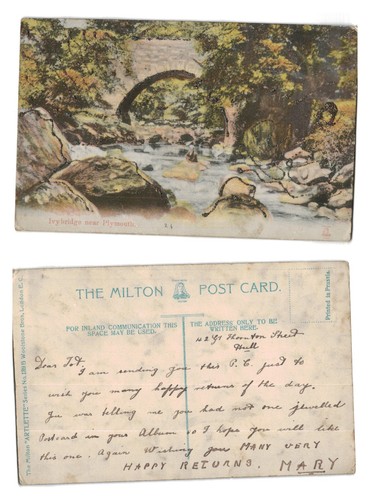 Ivybridge near Plymouth.
THE MILTON POST CARD.
FOR INLAND COMMUNICATION THIS SPACE MAY BE USED.
THE ADDRESS ONLY TO BE WRITTEN HERE.
Printed in Prussia.
The Milton "ARTLETTE" Series No.
Woodbridge Street, London E.C.
Thornton Street
Hull
Dear Tot.
I am sending you this P.C. just to
wish you many happy returns of the day.
You was telling me you had not one jewelled
Postcard in your Album so I hope you will like
this one. Again Wishing you MANY VERY
HAPPY RETURNS. MARY